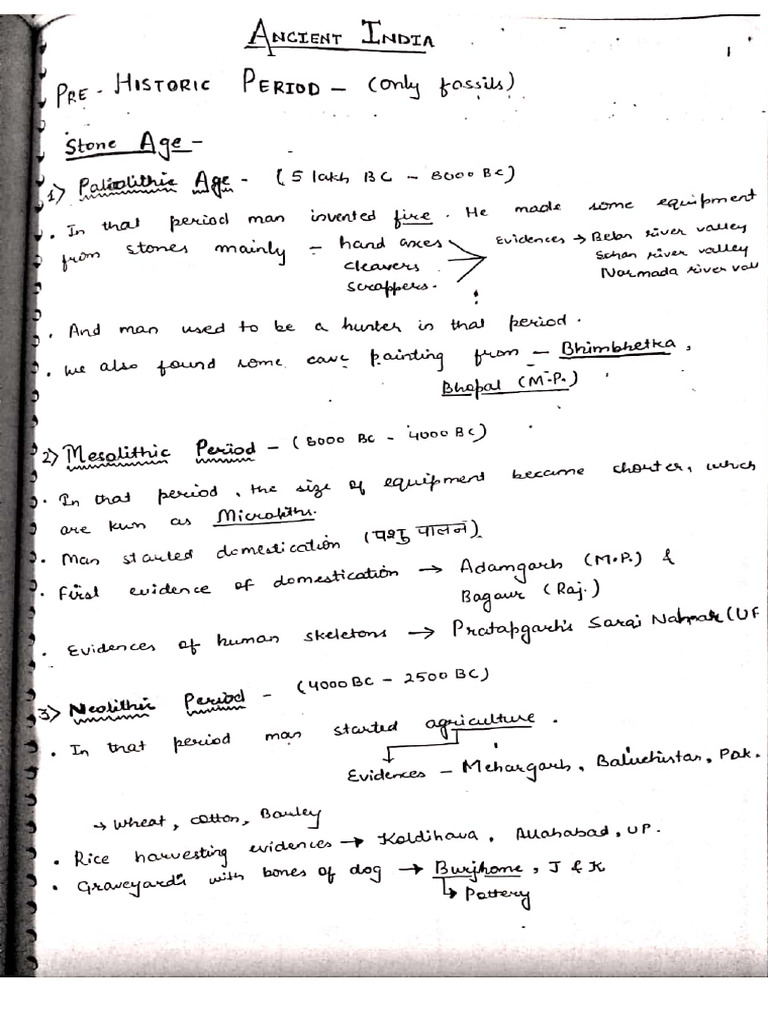 ANCIENT INDIA
1
PRE-HISTORIC PERIOD - (only fossils)
Stone Age -
1) Paleolithic Age - (5 lakh BC - 8000 BC)
• In that period man invented fire. He made some equipment
from stones mainly - hand axes
cleavers
scrappers.
Evidences → Belan river valley
Sohan river valley
Narmada river vall
• And man used to be a hunter in that period.
• We also found some cave painting from - Bhimbhetka,
Bhopal (M.P.)
2) Mesolithic Period - (8000 BC - 4000 BC)
• In that period, the size of equipment became shorter, which
are kwn as Microliths.
• Man started domestication (पशु पालन).
• First evidence of domestication → Adamgarh (M.P.) &
Bagaur (Raj.)
• Evidences of human skeletons → Pratapgarh's Sarai Nahar (UP
3) Neolithic Period - (4000 BC - 2500 BC)
• In that period man started agriculture.
Evidences - Mehargarh, Baluchistan, Pak.
→ Wheat, cotton, Barley
• Rice harvesting evidences → Koldihava, Allahabad, UP.
• Graveyards with bones of dog → Burjhome, J & K
↳ Pottery